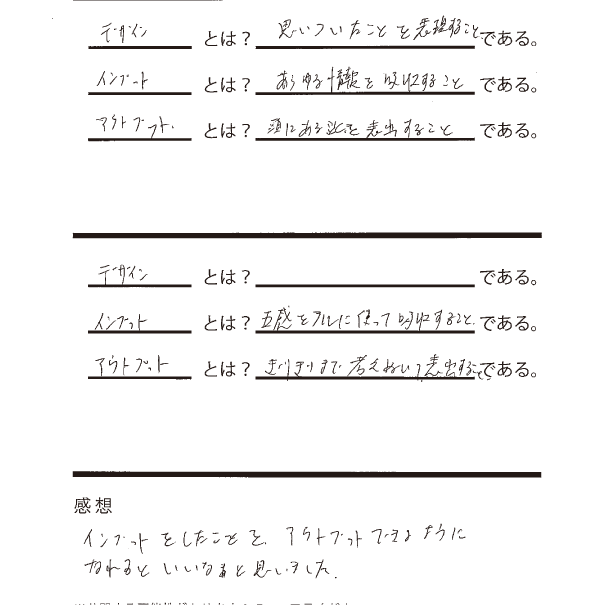 デザイン とは？ 思いついたことを表現すること である。
インプット とは？ あらゆる情報を吸収すること である。
アウトプット. とは？ 頭にあるを表出すること である。
デザイン とは？ である。
インプット とは？ 五感をフルに使って吸収すること. である。
アウトプット とは？ ぎりぎりまで考えぬいて表出すること である。
感想
インプットをしたことを、アウトプットできるように
なれるといいなると思いました.